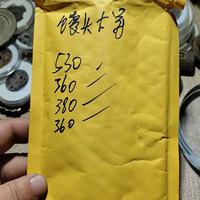 馒头大笋
530
360
380
360